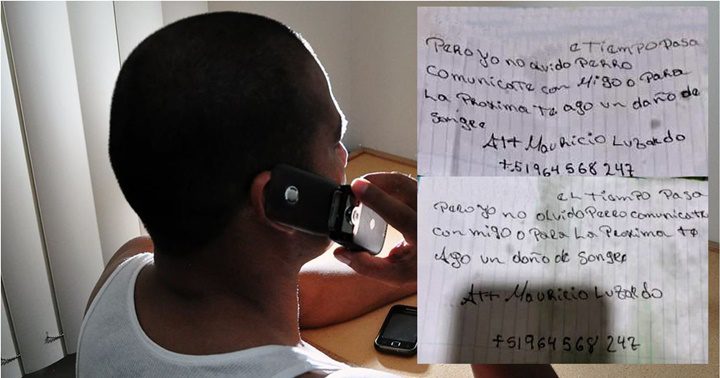 eTiempo Pasa
Pero yo no olvido Perro
comunicate con Migo o Para
La Proxima te ago un daño de
Songre
Att Mauricio Luzardo
+51964568247
eL Tiempo Pasa
Pero yo no olvido Perro comunicate
con migo o Para La Proxima te
Ago un daño de Songre
Att Mauricio Luzardo
+51964568247